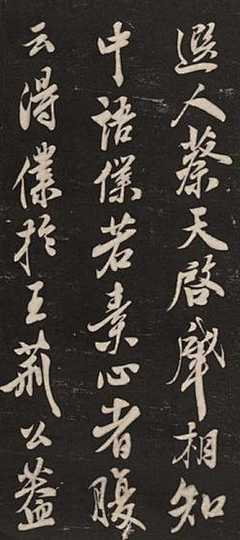 選人蔡天啓相知
中語僕若素心者
云得僕於王荊公蓋